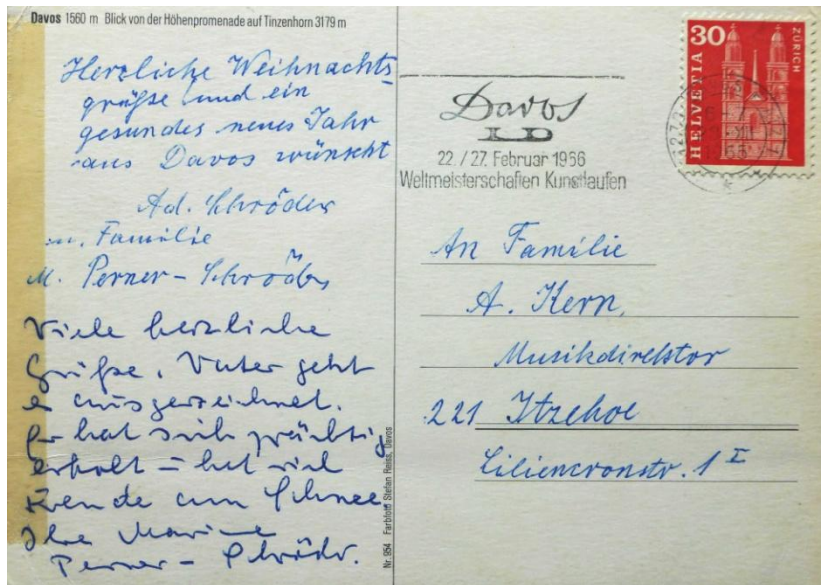 Davos 1560 m Blick von der Höhenpromenade auf Tinzenhorn 3179 m
Herzliche Weihnachts-
grüße und ein
gesundes neues Jahr
aus Davos wünscht
Ad. Schröder
u. Familie
M. Perner - Schröder
Viele herzliche
Grüße, Vater geht
es ausgezeichnet.
Er hat sich prächtig
erholt - hat viel
Freude am Schnee.
Ihre
Perner - Schröder.
Nr. 954 Farbfoto Stefan Reiss, Davos
Davos
22. / 27. Februar 1966
Weltmeisterschaften Kunstlaufen
30
HELVETIA
ZÜRICH
An Familie
A. Kern,
Musikdirektor
221 Itzehoe
Liliencronstr. 1 I